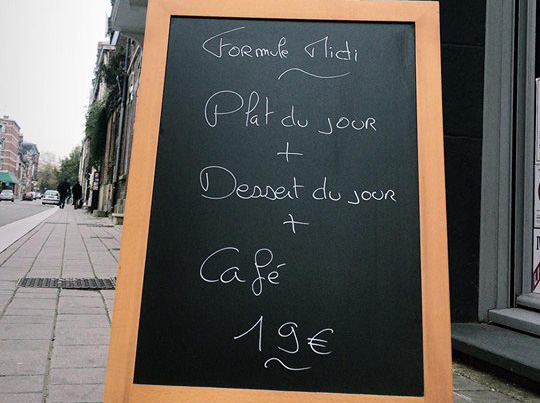 Formule Midi
Plat du jour
+
Dessert du jour
+
Café
19€